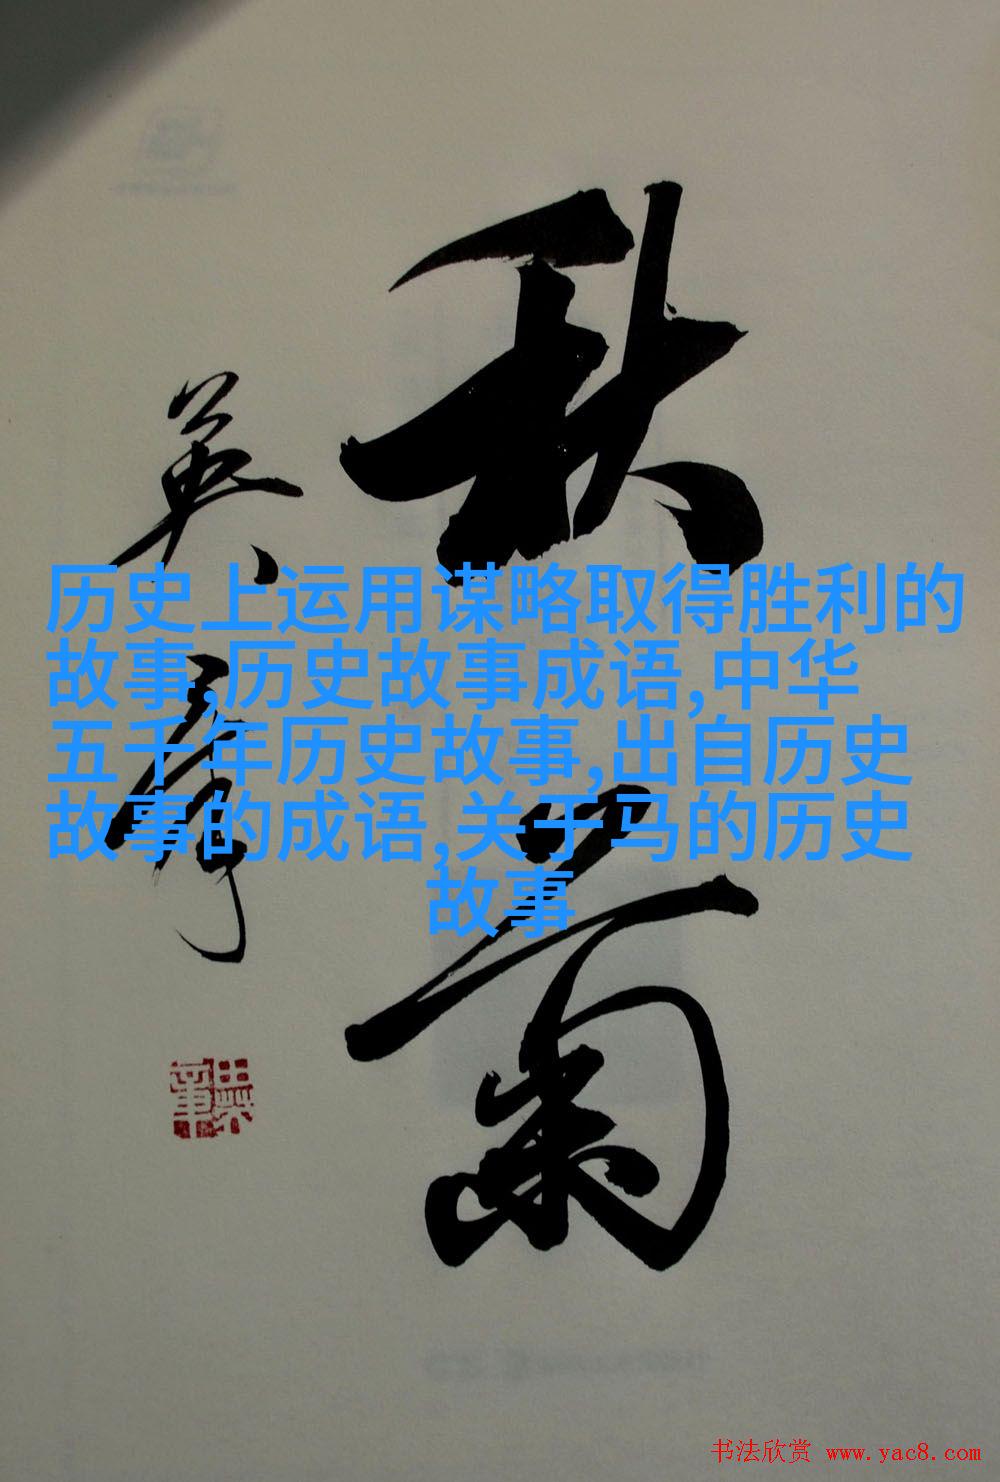 秋菊
英章
历史上运用谋略取得胜利的
故事,历史故事成语,中华
五千年历史故事,出自历史
故事的成语,关于马的历史
故事
书法欣赏 www.yac8.com